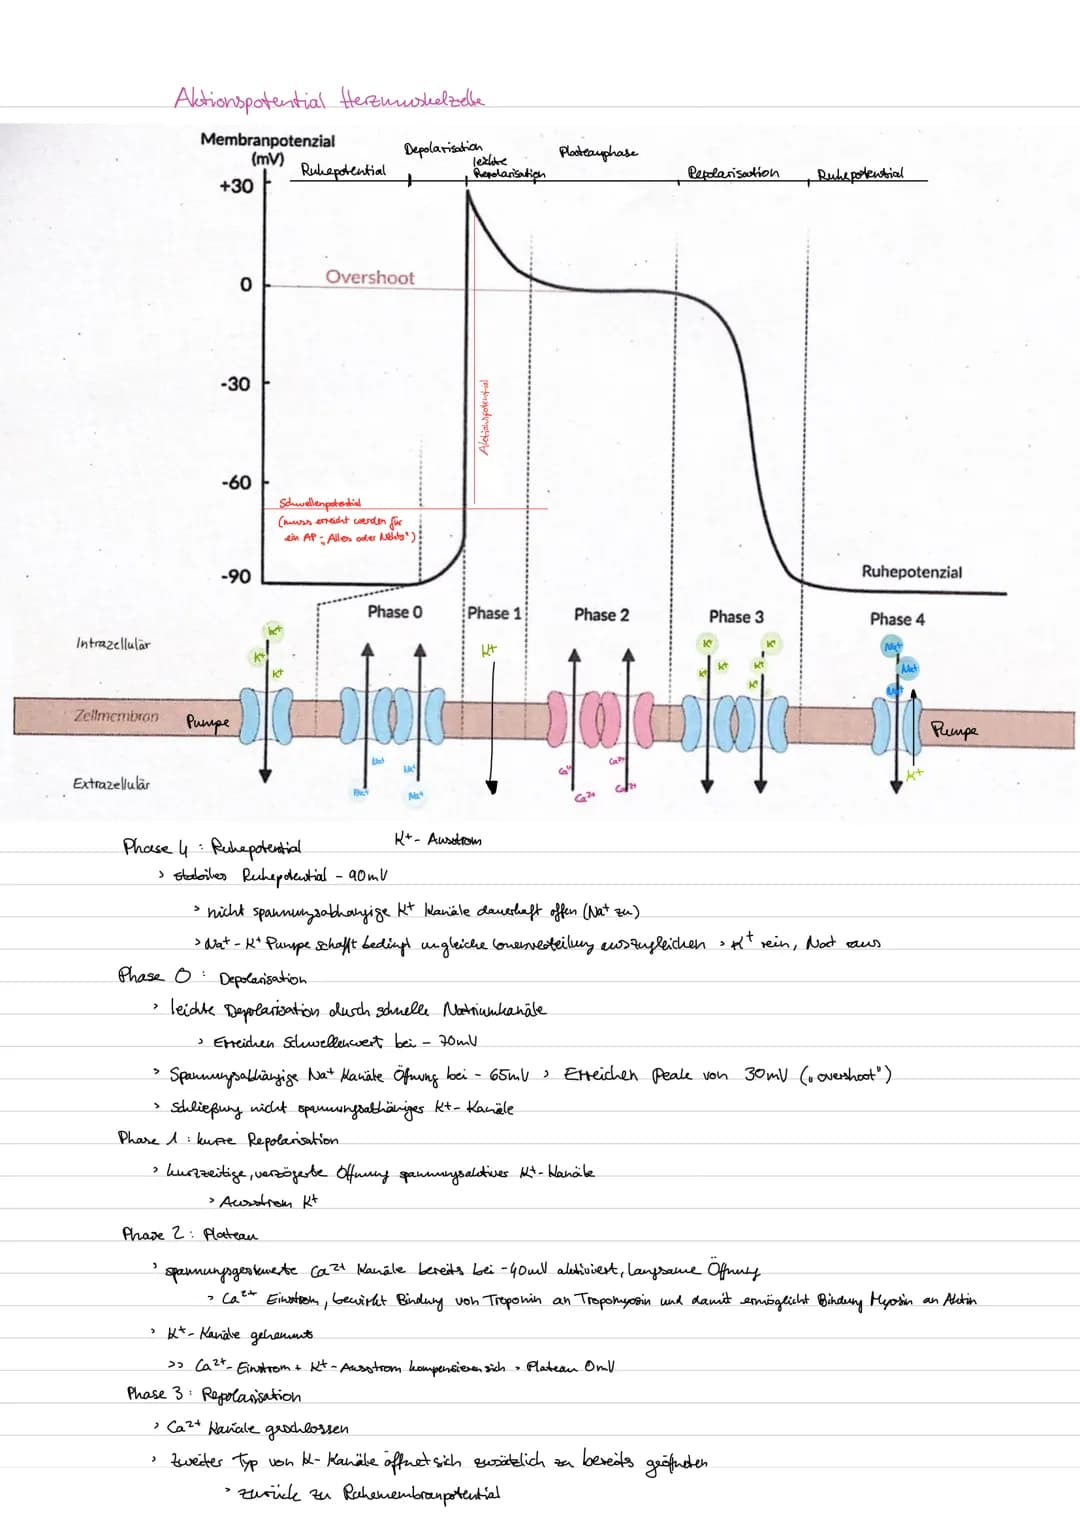 Aktionspotential Herzmuskelzelle
Membranpotenzial
(mV)
Ruhepotential
Depolarisation
leichte
Repolarisation
Plateauphase
Repolarisation
Ruhepotential
+30
0
Overshoot
-30
Aktionspotential
-60
Schwellenpotential
(muss erreicht werden für
ein AP - "Alles oder Nichts")
-90
Ruhepotenzial
Phase 0
Phase 1
Phase 2
Phase 3
Phase 4
Intrazellulär
K+
K+
K+
K+
K+
K+
K+
K+
K+
K+
Na+
Na+
Na+
Zellmembran
Pumpe
Pumpe
Extrazellulär
Na+
Na+
Na+
Na+
Ca2+
Ca2+
Ca2+
Ca2+
K+
K+ - Ausstrom
Phase 4 : Ruhepotential
> stabiles Ruhepotential - 90mV
> nicht spannungsabhängige K+ Kanäle dauerhaft offen (Na+ zu)
> Na+ - K+ Pumpe schafft bedingt ungleiche Ionenverteilung auszugleichen > K+ rein, Na+ raus
Phase 0 : Depolarisation
> leichte Depolarisation durch schnelle Natriumkanäle
> Erreichen Schwellenwert bei - 70mV
> Spannungsabhängige Na+ Kanäle Öffnung bei - 65mV > Erreichen Peak von 30mV („overshoot")
> Schließung nicht spannungsabhäniges K+- Kanäle
Phase 1 : kurze Repolarisation
> kurzzeitige, verzögerte Öffnung spannungsaktives K+- Kanäle
> Ausstrom K+
Phase 2 : Plateau
> spannungsgesteuerte Ca2+ Kanäle bereits bei -40mV aktiviert, langsame Öffnung
> Ca2+ Einstrom, bewirkt Bindung von Troponin an Tropomyosin und damit ermöglicht Bindung Myosin an Aktin
> K+- Kanäle gehemmt
>> Ca2+- Einstrom + K+ - Ausstrom kompensieren sich > Plateau 0mV
Phase 3 : Repolarisation
> Ca2+ Kanäle geschlossen
> Zweiter Typ von K- Kanäle öffnet sich zusätzlich zu bereits geöffneten
> zurück zu Ruhemembranpotential